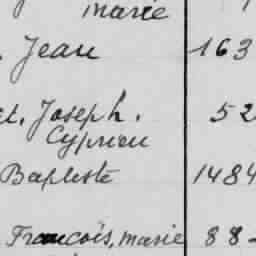 marie
. Jean 163
et, Joseph. 52
Cyprien
Baptiste 1484
François, marie 88-